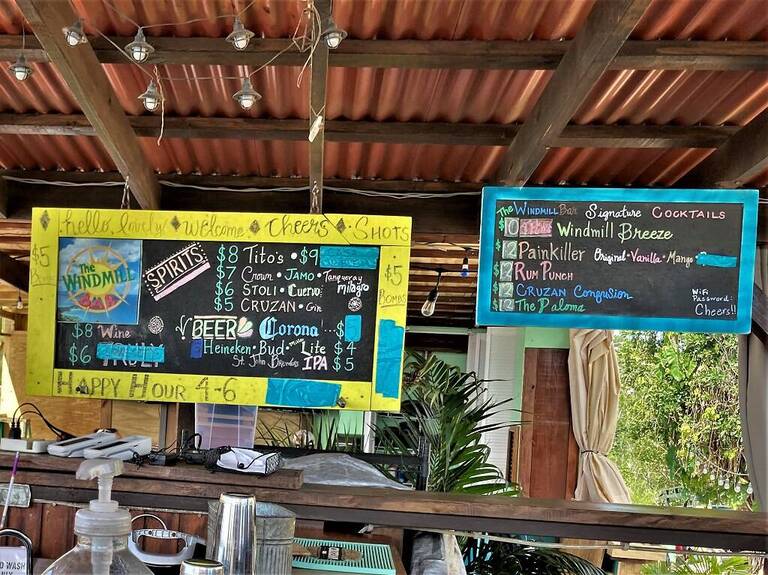 hello, lovely ◆ Welcome ◆ Cheers ◆ SHOTS
$5
$5
BOMBS
The
WINDMILL
BAR
SPIRITS
$8 Tito's • $9
$7 Crown • JAMO • Tanqueray
$6 STOLI • Cuervo milagro
$5 CRUZAN • Gin
$8 Wine
$6
BEER Corona ... $
Heineken • Bud • Lite $4
St. John Brewers IPA $5
HAPPY HOUR 4-6
The WINDMILL Bar Signature COCKTAILS
$10 Windmill Breeze
$12 Painkiller Original • Vanilla • Mango
$12 RUM PUNCH
$12 CRUZAN Confusion
$12 The Paloma
WiFi
Password:
Cheers!!
WASH